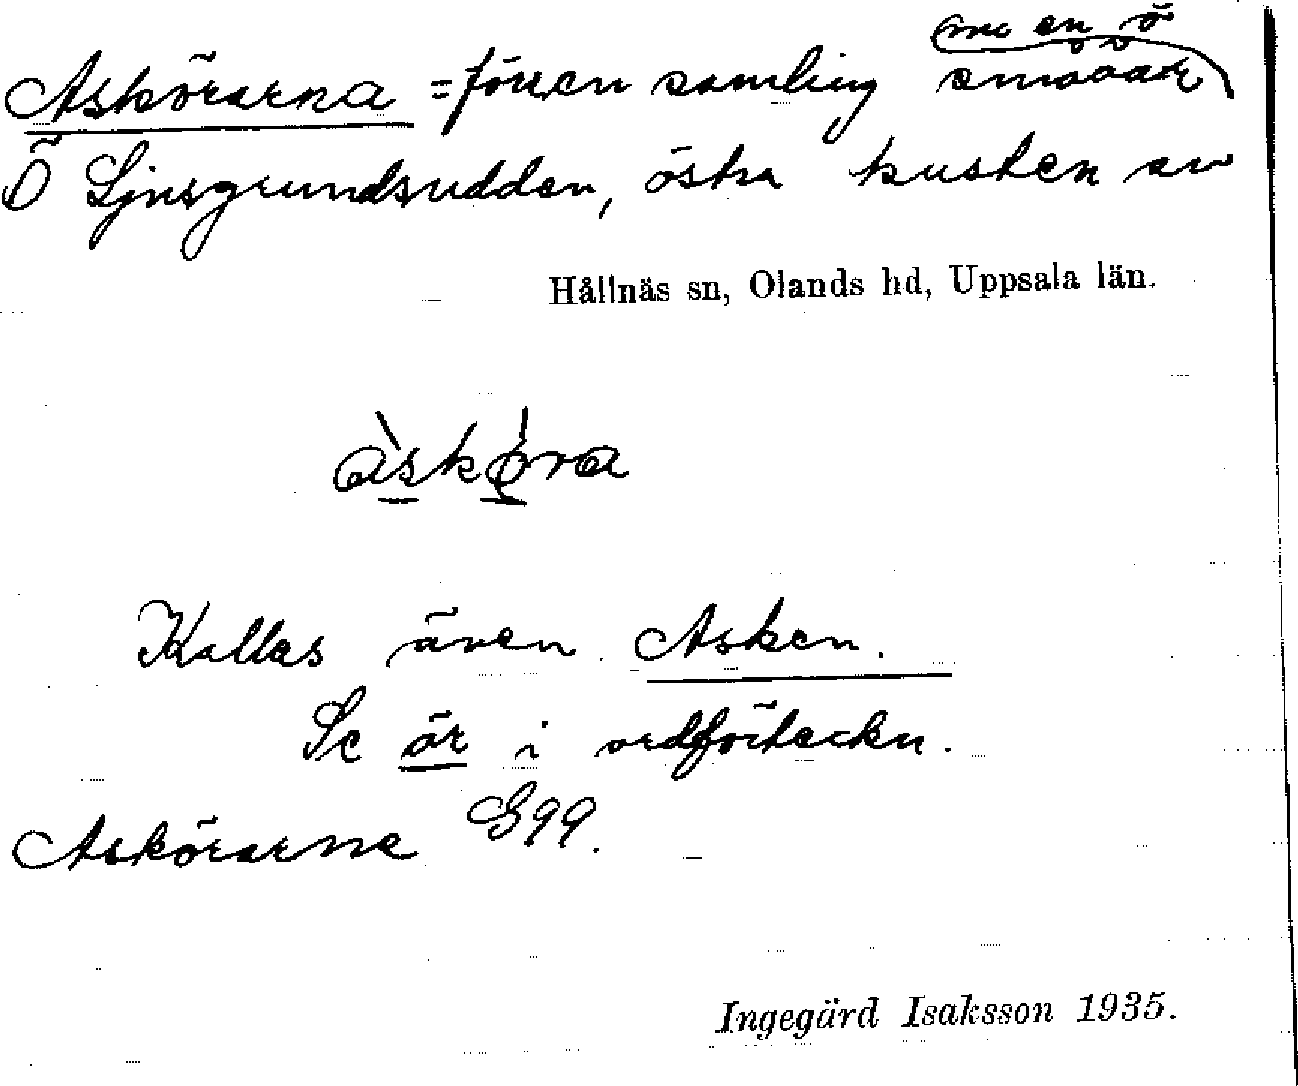 (nu en ö
Askörarna = förr en samling småöar)
Ö Ljusgrundsudden, östra kusten av
Hållnäs sn, Olands hd, Uppsala län.
àskö́ra
Kallas även Asken.
Se ör i ordförteckn.
Askörarne G99.
Ingegärd Isaksson 1935.